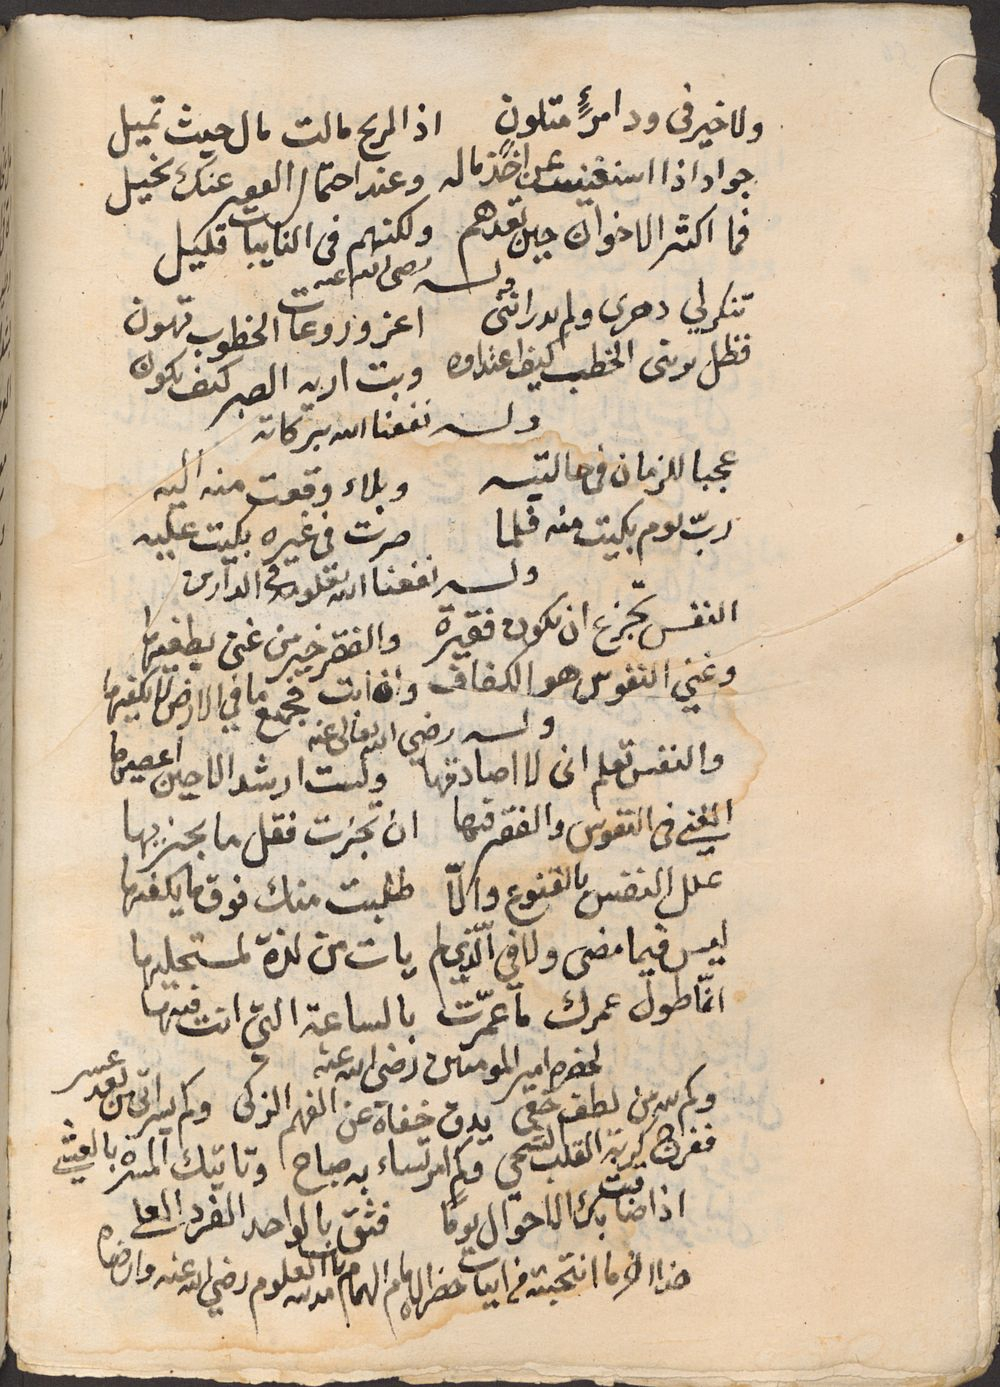 ولا خير في ود امرئ متلون اذ الريح مالت مال حيث تميل
جواد اذا استغنيت عن اخذ ماله وعند احتمال الفقر عنك بخيل
فما اكثر الاخوان حين تعدهم ولكنهم في النايبات قليل
وله رضي الله عنه
تنكر لي دهري ولم يدر انني اعز وروعات الخطوب تهون
فظل يريني الخطب كيف اعتداوه وبت اريه الصبر كيف يكون
وله نفعنا الله ببركاته
عجبا للزمان في حالتيه وبلاء وقعت منه اليه
ربّ يوم بكيت منه فلما صرت في غيره بكيت عليه
وله نفعنا الله بعلومه في الدارين
النفس تجزع ان تكون فقيرة والفقر خير من غنى يطغيها
وغنى النفوس هو الكفاف وان ابت فجميع ما في الارض لا يكفيها
وله رضي الله تعالى عنه
والنفس تعلم اني لا اصادقها ولست ارشد الا حين اعصيها
الغنى في النفوس والفقر فيها ان تجزت فقل ما يجزيها
علل النفس بالقنوع والّا طلبت منك فوق ما يكفيها
ليس فيما مضى ولا في الّذي لم يات من لذة لمستحليها
انمّا طول عمرك ما عمّرت بالساعة التي انت فيها
لحضرة امير المومنين رضي الله عنه
وكم لله من لطف خفي يدق خفاه عن الفهم الزكي وكم يسر اتى من بعد عسر
ففرج كربة القلب الشجي وكم امر تساء به صباحا وتاتيك المسرة بالعشي
اذا ضاقت بك الاحوال يوما فثق بالواحد الفرد العلي
هذا اخر ما انتخبته من ابيات حضرة الامام الهمام باب مدينة العلوم رضي الله عنه وارضاه